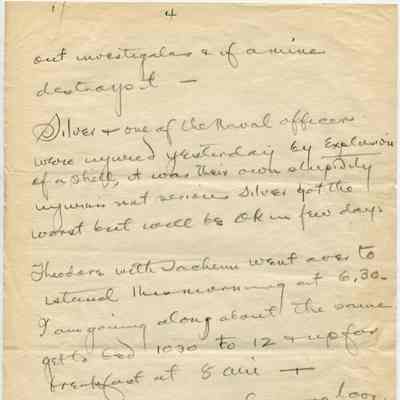 1/ 4
out investigates & if a mine
destroys it —
Silver & one of the Naval officers
were injured yesterday by Explosion
of a shell, it was their own stupidity
injuries not serious Silver got the
worst but will be OK in few days
Theodore with Jachems went over to
island this morning at 6,30 -
I am going along about the same
get to bed 1030 to 12 & up for
breakfast at 8 am —